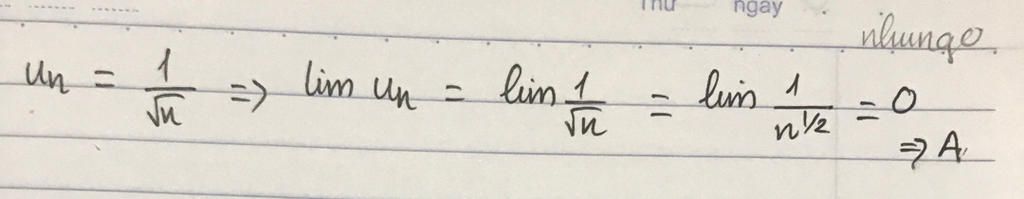 Thứ ngày
nhungo.
uₙ = 1/√n => lim uₙ = lim 1/√n = lim 1/n^1/2 = 0
=> A